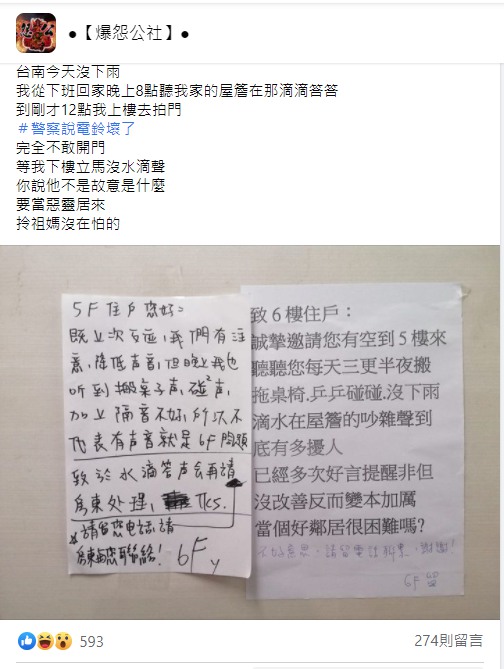 ●【爆怨公社】●
台南今天沒下雨
我從下班回家晚上8點聽我家的屋簷在那滴滴答答
到剛才12點我上樓去拍門
＃警察說電鈴壞了
完全不敢開門
等我下樓立馬沒水滴聲
你說他不是故意是什麼
要當惡靈居來
拎祖媽沒在怕的
5F住戶您好：
既上次反應，我們有注
意，降低声音，但晚上我也
听到搬桌子声，碰²声，
加上隔音不好，所以不
代表有声音就是6F問題
致於水滴答声会再請
房東处理，Tks.
*請留您电話，請
房東與您聯絡！ 6F
致6樓住戶：
誠摯邀請您有空到5樓來
聽聽您每天三更半夜搬
拖桌椅.乒乒碰碰.沒下雨
滴水在屋簷的吵雜聲到
底有多擾人
已經多次好言提醒非但
沒改善反而變本加厲
當個好鄰居很困難嗎?
不好意思，請留電話，謝謝！
6F 留
593
274則留言